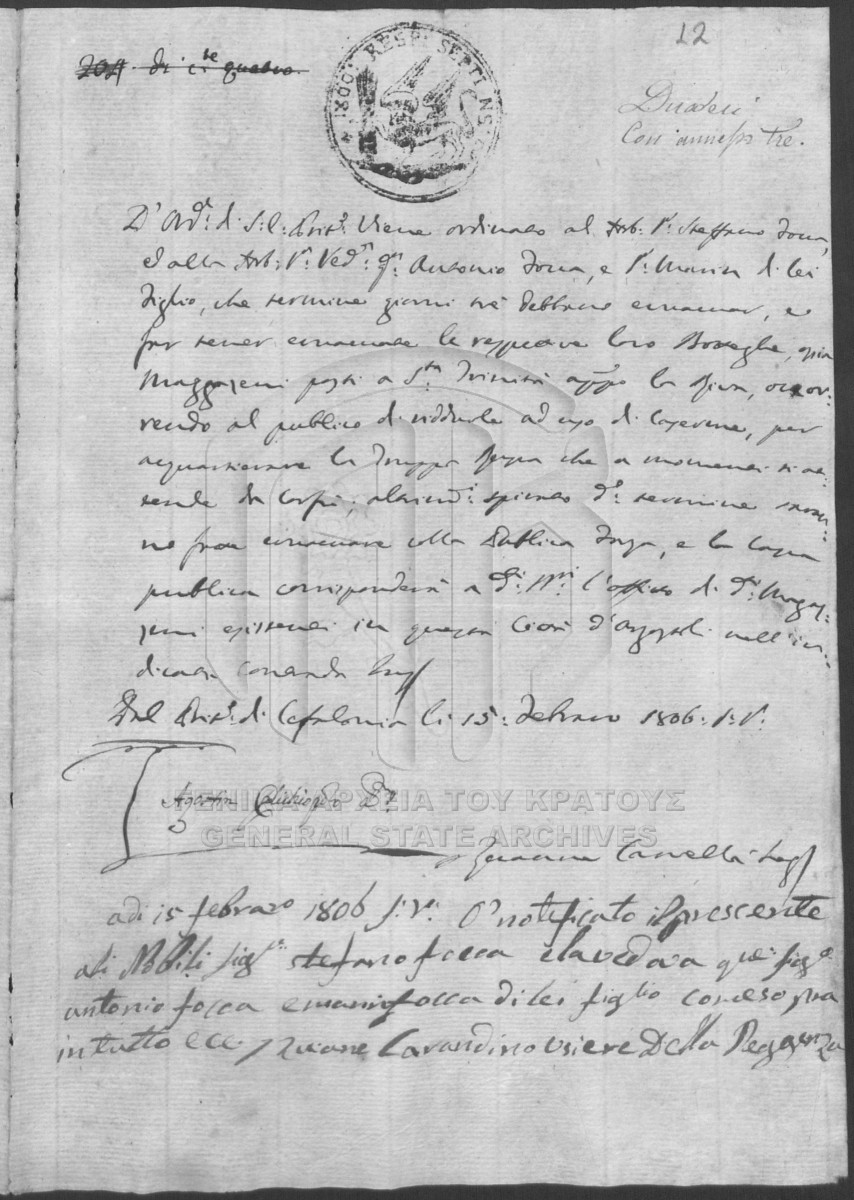 12
* 1800: RESP: SEPTINS
Con annessi tre.
D'Ord: di S: E: viene ordinato al Nob: Sr: Steffano Focca,
ed alla Nob: Sra: Ved: qm: Antonio Focca, e Sr: Marin di lei
Figlio, che termine giorni tre debbano evacuar, e
far tener evacuate le respetive loro Botteghe, osia
Maggazeni posti a Sta: Trinità appo la Riva, occor:
rendo al publico di ridurle ad uso di Caserme, per
acquartierare la Truppa Russa che a momenti si at:
tende da Corfù; spirato do: termine saran:
no fatte evacuare colla Publica Forza, e la Cassa
publica corrisponderà a di: l'affitto di di: Magaz:
zeni esistenti in questa Città d'Argostoli nell'in:
dicata Contrada
Dal di Cefalonia li 15: Febraro 1806: S: V:
ΓΕΝΙΚΑ ΑΡΧΕΙΑ ΤΟΥ ΚΡΑΤΟΥΣ
GENERAL STATE ARCHIVES
adi 15 febraro 1806 S: V: O' notificato il prescente
ali Nobili sigri stefano focca e la vedova qm: sigr
antonio focca e marin focca di lei figlio come sopra
in tutto ecc / Zuane Cavandino usiere Della Reggenza